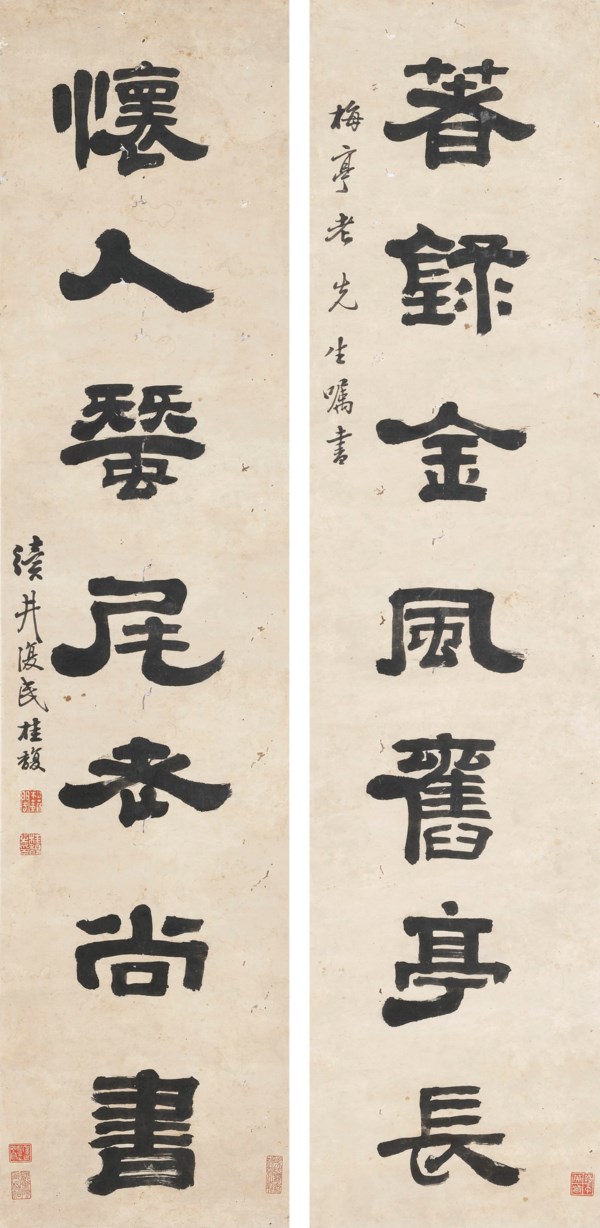 著録金風舊亭長
梅亭老先生嘱書
懷人蠶尾老尚書
瀆井復民桂馥